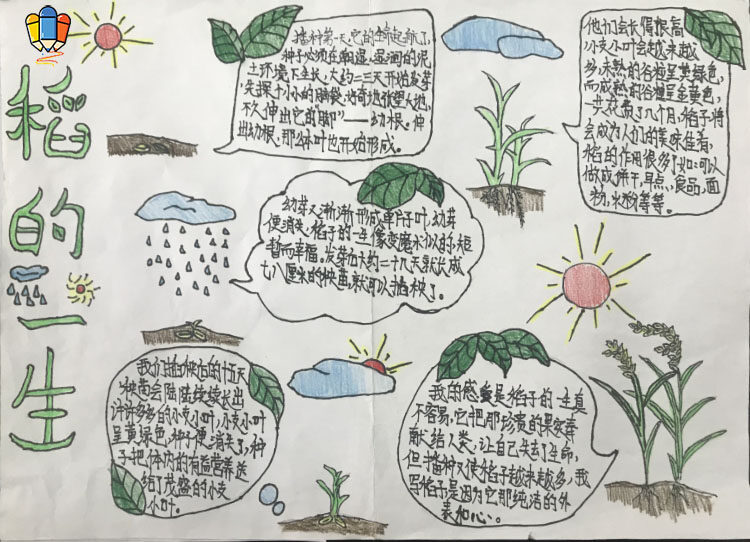 稻的一生
播种第一天,它的生命起航了,
种子必须在潮湿,湿润的泥
土环境下生长,大约二三天开始发芽
先探出小小的脑袋,好奇地张望大地,
不久伸出它的"脚"——幼根。伸
出幼根,那么休叶也开始形成。
幼芽又渐渐形成单片子叶,幼芽
便消失,稻子的一生像变魔术似的,短
暂而幸福。发芽后大约二十几天就长成
七八厘米的秧苗,就可以插秧了。
他们会长得很高,
小支小叶会越来越
多,未熟的谷粒呈黄绿色,
而成熟的谷粒呈金黄色,
一共花费了几个月,稻子将
会成为人们的美味佳肴,
稻的作用很多了如:可以
做成饼干,早点、食品,面
粉,米粉等等。
我们插秧后的十五天
秧苗会陆陆续续长出
许许多多的小支小叶,小支小叶
呈黄绿色,种子便消失了,种
子把体内的有益营养送
给了茂盛的小支
小叶。
我的感觉是稻子的一生真
不容易,它把那珍贵的果实奉
献给人类,让自己失去了生命,
但播种又使稻子越来越多,我
写稻子是因为它那纯洁的外
表和心。